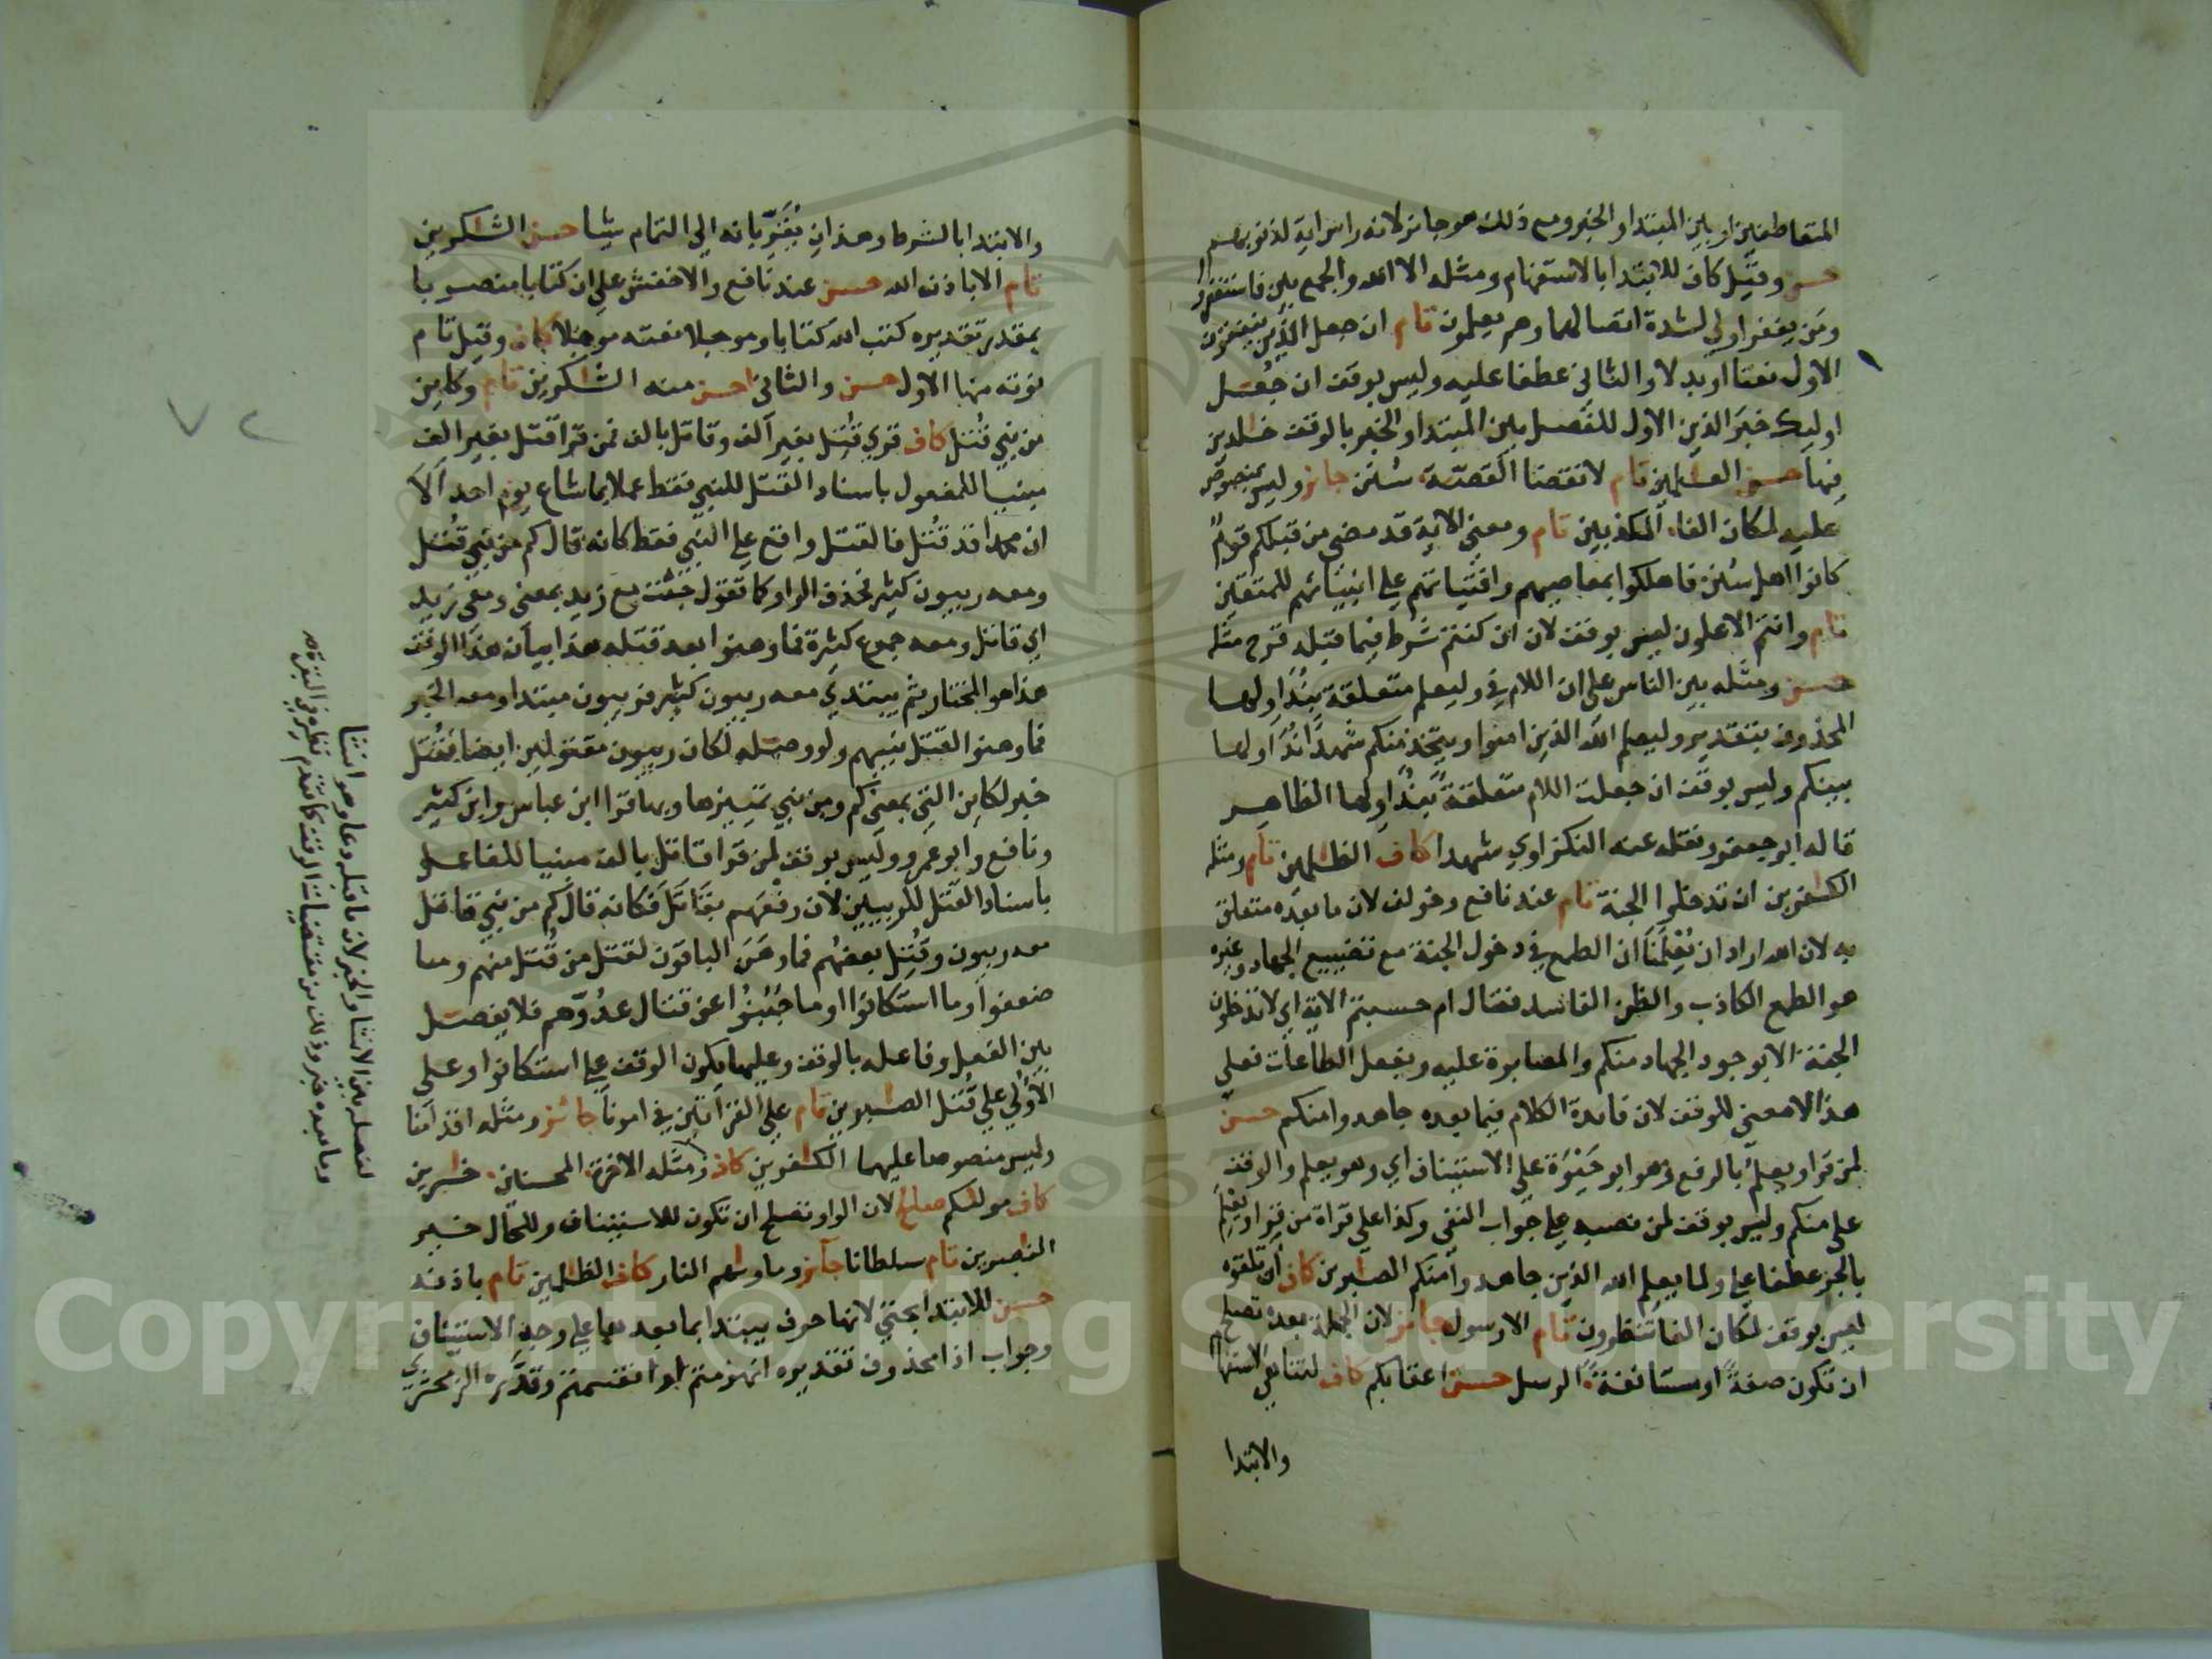 المتعاطفين او بين المبتدا والخبر ومع ذلك هو جائز لانه راس اية لذنوبهم
حسن وقيل كاف للابتدا بالاستفهام ومثله الا الله والجمع بين فاستغفروا
ومن يغفر اولي لشدة اتصالهما وهم يعلمون تام ان جعل الذين ينفقون
الاول نعتا او بدلا والثاني عطفا عليه وليس بوقف ان جُعل
اوليك خبرَ الذين الاول للفصل بين المبتدا والخبر بالوقف خلدين
فيها حسن العملين تام لانقضا القصّة سُنَن جائز وليس بمنصوص
عليه لمكان الفا المكذبين تام ومعنى الاية قد مضى من قبلكم قوم
كانوا اهل سُنن فاهلكوا بمعاصيهم وافتياتهم علي انبيائهم للمتقين
تام وانتم الاعلون ليس بوقف لان ان كنتم شرط فيما قبله قرح مثله
حسن ومثله بين الناس علي ان اللام في وليعلم متعلقة بنُداولها
المحذوف بتقدير وليعلم الله الذين امنوا ويتخذ منكم شهدا نُداولها
بينكم وليس بوقف ان جعلت اللام متعلقةً بنُداولها الظاهر
قاله ابو جعفر ونقله عنه النكزاوي شهدا كاف الظلمين تام ومثله
الكفرين ان تدخلوا الجنة تام عند نافع وخولف لان ما بعده متعلق
به لان الله اراد ان يُعْلِمَنَا ان الطمع في دخول الجنة مع تضييع الجهاد وغيره
هو الطمع الكاذب والظن الفاسد فقال ام حسبتم الاية اي لا تدخلون
الجنة الا بوجود الجهاد منكم والمصابرة عليه وبفعل الطاعات فعلي
هذا لا معنى للوقف لان فايدة الكلام فيما بعده جاهدوا منكم حسن
لمن قرا ويعلمُ بالرفع وهو ابو حَيْوَة علي الاستيناف اي وهو يعلم والوقف
علي منكم وليس بوقف لمن نصبه علي جواب النفي وكذا علي قراة من قرا ويعلمِ
بالجر عطفا علي ولما يعلم الله الذين جاهدوا منكم الصبرين كاف ان تلقوه
ليس بوقف لمكان الفا تنظرون تام الا رسول جائز لان الجملة بعده تصلح
ان تكون صفةً او مستانفةً الرسل حسن اعقابكم كاف لتناهي الاستفهام
والابتدا
والابتدا بالشرط وهذا ان يُقَرِّبانه الي التمام شيا حسن الشكرين
تام الا باذن الله حسن عند نافع والاخفش علي ان كتابا منصوبا
بمقدر تقديره كتب الله كتابا وموجلا نعته موجلا كاف وقيل تام
نوته منها الاول حسن والثاني احسن منه الشكرين تام وكاين
من نبي قُتل كاف قري قُتل بغير الف وقاتل بالف فمن قرا قتل بغير الف
مبنيا للمفعول باسناد القتل للنبي فقط عملا بما شاع يوم احد ألا
ان محمدا قد قُتل فالقتل واقع علي النبي فقط كانه قال كم من نبي قُتل
ومعه ربيون كثير فحذف الواو كما تقول جئت مع زيد بمعنى ومعي زيد
اي قاتل ومعه جموع كثيرة فما وهنوا بعد قتله هذا بيان هذا الوقف
هذا هو المختار ثم يبتدي معه ربيون كثير فربيون مبتدا ومعه الخبر
فما وهنوا لقتل نبيهم ولو وصله لكان ربيون مقتولين ايضا فقُتل
خبر لكاين التي بمعنى كم ومن نبي تمييزها وبها قرا ابن عباس وابن كثير
ونافع وابو عمرو وليس بوقف لمن قرا قاتل بالف مبنيا للفاعل
باسناد القتل للربيين لان رفعهم بقَاتَلَ فكانه قال كم من نبي قاتل
معه ربيون وقُتل بعضُهم فما وهَنَ الباقون لقتل من قُتل منهم وما
ضعفوا وما استكانوا وما جَبُنُوا عن قتال عدُوّهم فلا يفصل
بين الفعل وفاعله بالوقف وعليهما يكون الوقف علي استكانوا وعلي
الاولي علي قُتل الصبرين تام علي القراتين في امرنا جائز ومثله اقدامنا
وليس منصوصا عليهما الكفرين كاف ومثله الاخرة المحسنين خسرين
كاف مولىكم صالح لان الواو تصلح ان تكون للاستيناف وللحال خير
النصرين تام سلطانا جائز وماوىهم النار كاف الظلمين تام باذنه
حسن للابتدا بحتى لانها حرف يبتدا بما بعدها علي وجه الاستيناف
وجواب اذا محذوف تقديره انهزمتم او انقسمتم وقدَّره الزمخشري
لفصله بين الانشا والخبر لان ما قبله دعا وهو انشا
وما بعده خبر وذلك من مقتضيات الوقف كما تقدم نظيره في البقرة
٧٢
Copyright © King Saud University
1957